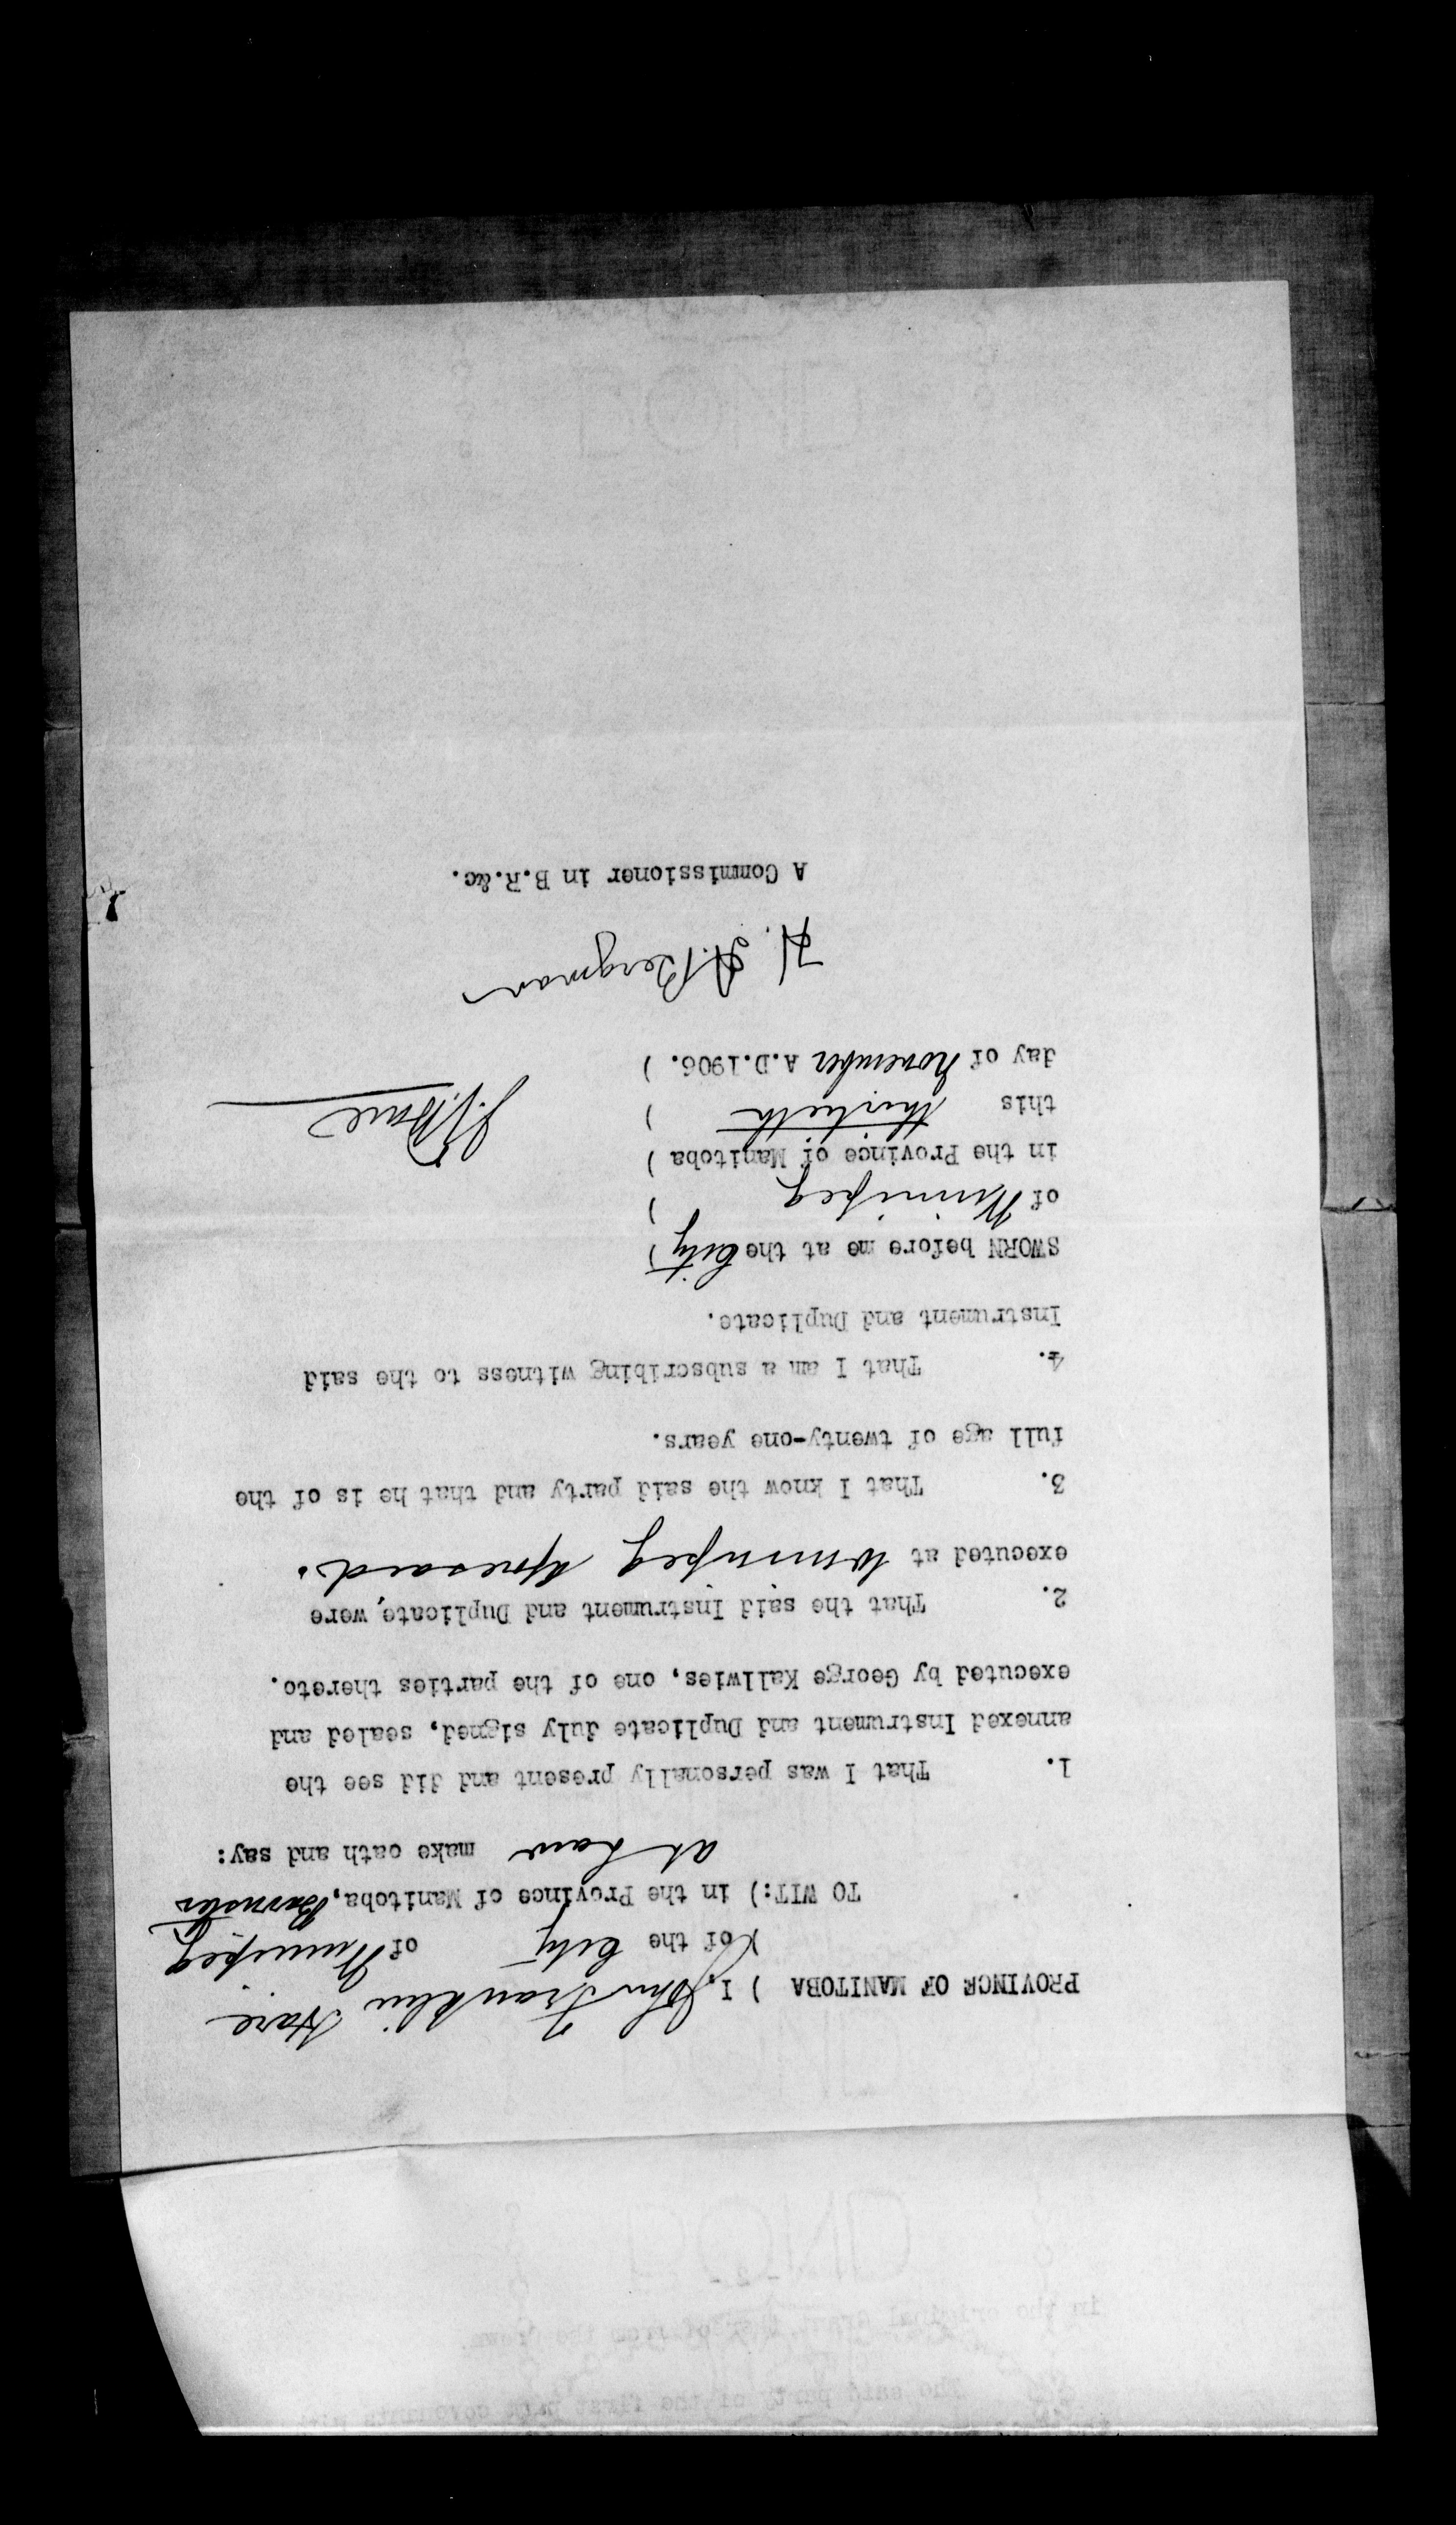 PROVINCE OF MANITOBA ) I, John Franklin Hare
) of the City of Winnipeg
TO WIT: ) in the Province of Manitoba, Barrister
at Law make oath and say:
1. That I was personally present and did see the
annexed Instrument and Duplicate duly signed, sealed and
executed by George Kallwies, one of the parties thereto.
2. That the said Instrument and Duplicate, were
executed at Winnipeg aforesaid.
3. That I know the said party and that he is of the
full age of twenty-one years.
4. That I am a subscribing witness to the said
Instrument and Duplicate.
SWORN before me at the City )
of Winnipeg )
in the Province of Manitoba )
this thirtieth )
day of November A.D.1906. )
J. F. Hare
H. A. Bergman
A Commissioner in B.R.&c.
- 2 -
in the original Grant thereof from the Crown.
The said party of the first part covenants with